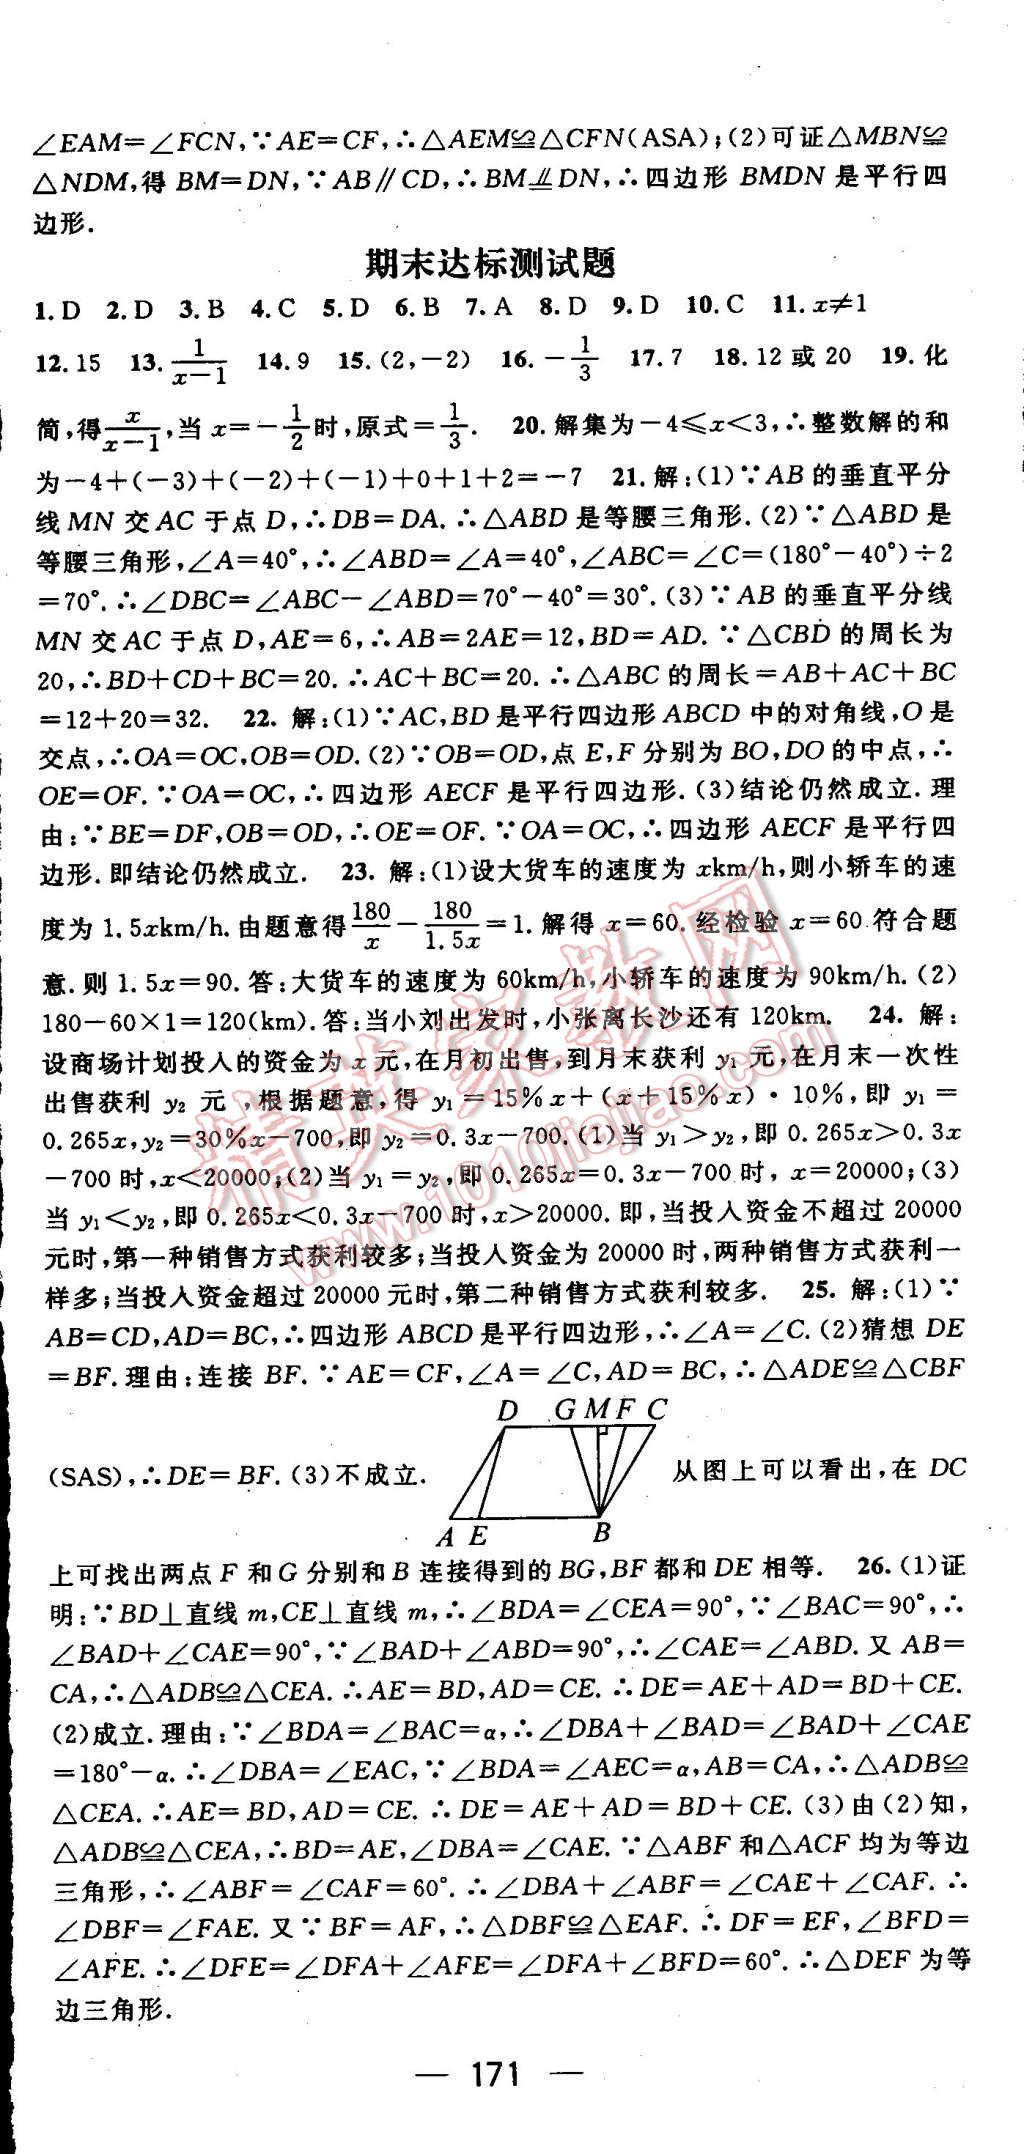 ∠EAM=∠FCN,∵AE=CF,∴△AEM≌△CFN(ASA);(2)可证△MBN≌
△NDM,得 BM=DN,∵AB∥CD,∴BM⫽DN,∴四边形 BMDN 是平行四
边形.
期末达标测试题
1.D 2.D 3.B 4.C 5.D 6.B 7.A 8.D 9.D 10.C 11.x≠1
12.15 13.1/(x-1) 14.9 15.(2,-2) 16.-1/3 17.7 18.12或20 19.化
简,得x/(x-1),当 x=-1/2时,原式=1/3. 20.解集为-4≤x<3,∴整数解的和
为-4+(-3)+(-2)+(-1)+0+1+2=-7 21.解:(1)∵AB的垂直平分
线MN 交 AC 于点 D,∴DB=DA.∴△ABD是等腰三角形.(2)∵△ABD是
等腰三角形,∠A=40°,∴∠ABD=∠A=40°,∠ABC=∠C=(180°-40°)÷2
=70°.∴∠DBC=∠ABC-∠ABD=70°-40°=30°.(3)∵AB的垂直平分线
MN 交 AC 于点 D,AE=6,∴AB=2AE=12,BD=AD.∵△CBD的周长为
20,∴BD+CD+BC=20.∴AC+BC=20.∴△ABC的周长=AB+AC+BC
=12+20=32. 22.解:(1)∵AC,BD是平行四边形ABCD中的对角线,O是
交点,∴OA=OC,OB=OD.(2)∵OB=OD,点E,F分别为BO,DO的中点,∴
OE=OF.∵OA=OC,∴四边形 AECF 是平行四边形.(3)结论仍然成立.理
由:∵BE=DF,OB=OD,∴OE=OF.∵OA=OC,∴四边形 AECF 是平行四
边形.即结论仍然成立. 23.解:(1)设大货车的速度为 xkm/h,则小轿车的速
度为1.5xkm/h.由题意得180/x-180/1.5x=1.解得 x=60.经检验 x=60 符合题
意.则1.5x=90.答:大货车的速度为60km/h,小轿车的速度为90km/h.(2)
180-60×1=120(km).答:当小刘出发时,小张离长沙还有120km. 24.解:
设商场计划投入的资金为 x 元,在月初出售,到月末获利 y₁ 元,在月末一次性
出售获利 y₂ 元,根据题意,得 y₁=15%x+(x+15%x)·10%,即 y₁=
0.265x,y₂=30%x-700,即y₂=0.3x-700.(1)当y₁>y₂,即0.265x>0.3x
-700时,x<20000;(2)当 y₁=y₂,即0.265x=0.3x-700时,x=20000;(3)
当y₁<y₂,即0.265x<0.3x-700时,x>20000.即,当投入资金不超过20000
元时,第一种销售方式获利较多;当投入资金为20000时,两种销售方式获利一
样多;当投入资金超过20000元时,第二种销售方式获利较多. 25.解:(1)∵
AB=CD,AD=BC,∴四边形ABCD是平行四边形,∴∠A=∠C.(2)猜想DE
=BF.理由:连接 BF.∵AE=CF,∠A=∠C,AD=BC,∴△ADE≌△CBF
D GMFC
(SAS),∴DE=BF.(3)不成立. 从图上可以看出,在 DC
A E B
上可找出两点F和G分别和B连接得到的BG,BF都和DE相等. 26.(1)证
明:∵BD⊥直线 m,CE⊥直线 m,∴∠BDA=∠CEA=90°,∵∠BAC=90°,∴
∠BAD+∠CAE=90°,∵∠BAD+∠ABD=90°,∴∠CAE=∠ABD.又AB=
CA,∴△ADB≌△CEA.∴AE=BD,AD=CE.∴DE=AE+AD=BD+CE.
(2)成立.理由:∵∠BDA=∠BAC=α,∴∠DBA+∠BAD=∠BAD+∠CAE
=180°-α.∴∠DBA=∠EAC,∵∠BDA=∠AEC=α,AB=CA,∴△ADB≌
△CEA.∴AE=BD,AD=CE.∴DE=AE+AD=BD+CE.(3)由(2)知,
△ADB≌△CEA,∴BD=AE,∠DBA=∠CAE.∵△ABF和△ACF均为等边
三角形,∴∠ABF=∠CAF=60°.∴∠DBA+∠ABF=∠CAE+∠CAF.∴
∠DBF=∠FAE.又∵BF=AF,∴△DBF≌△EAF.∴DF=EF,∠BFD=
∠AFE.∴∠DFE=∠DFA+∠AFE=∠DFA+∠BFD=60°.∴△DEF为等
边三角形.
— 171 —
精英家教网
www.1010jiajiao.com